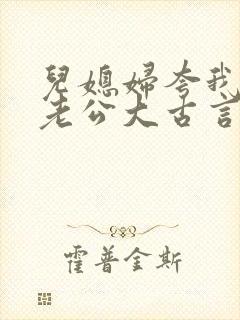 兒媳婦夸我
老公大古言
霍普金斯